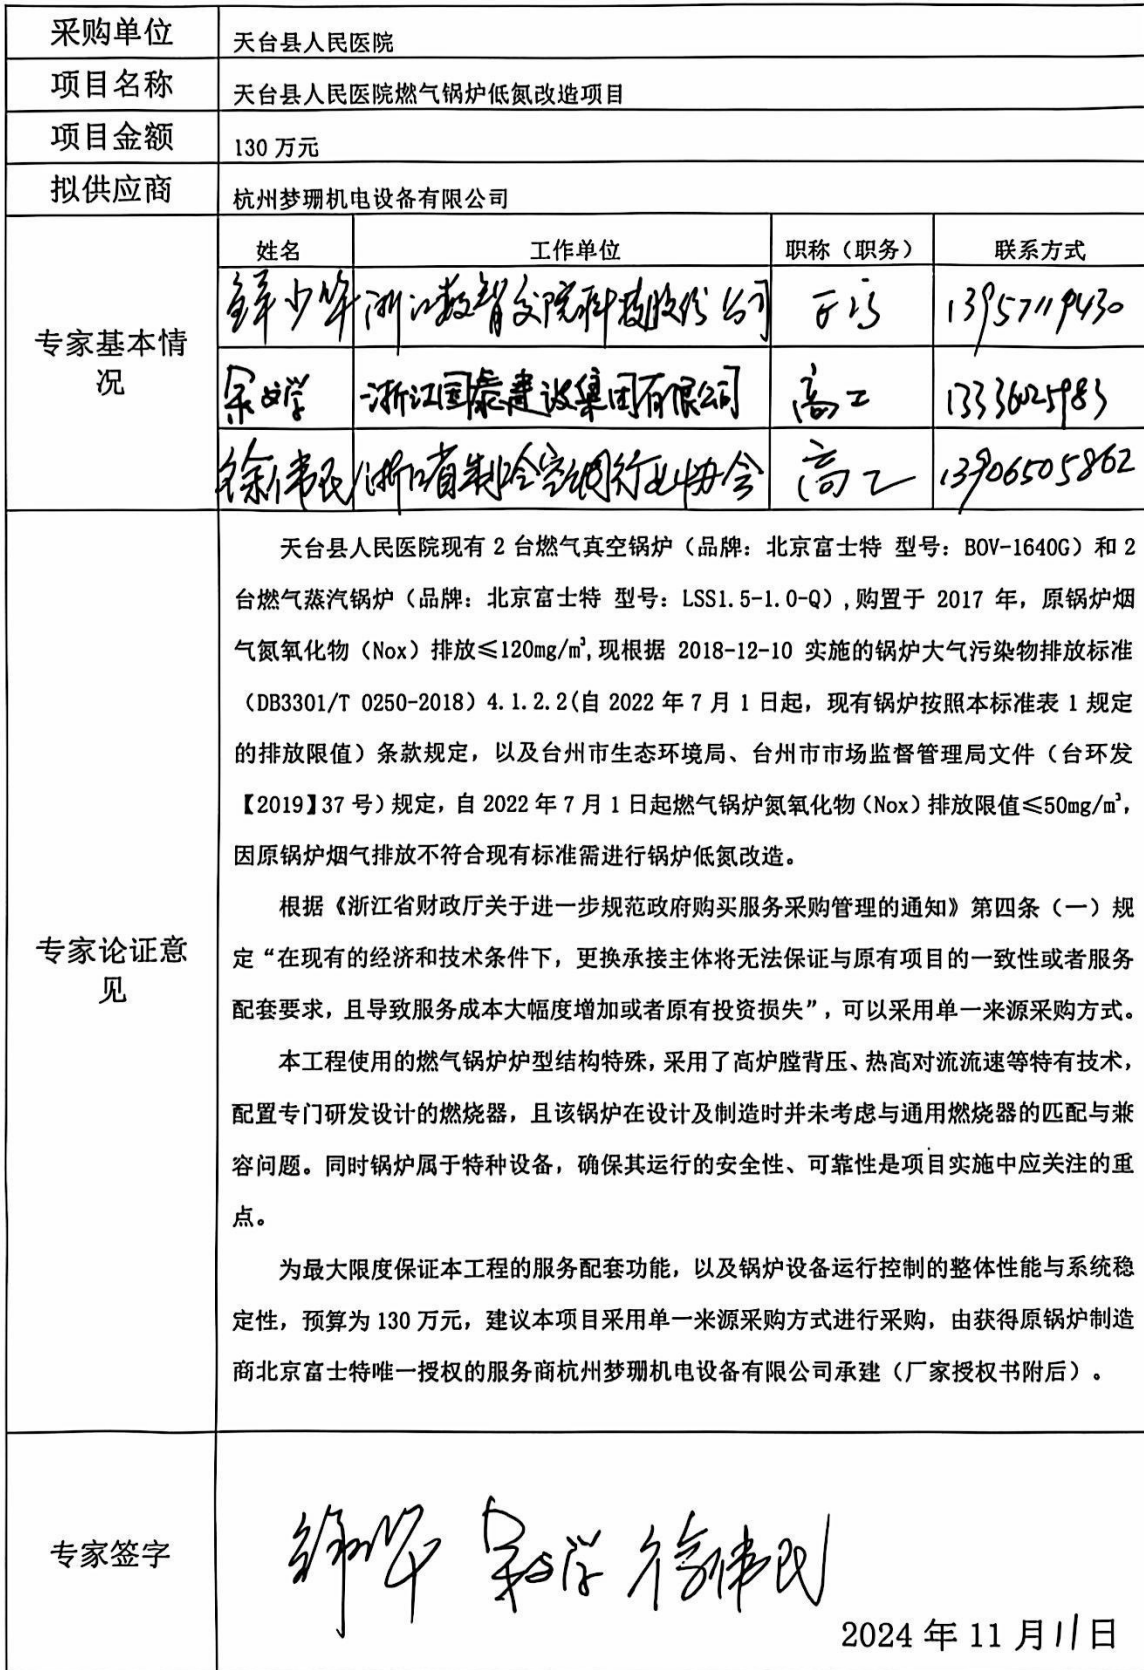 采购单位 天台县人民医院
项目名称 天台县人民医院燃气锅炉低氮改造项目
项目金额 130 万元
拟供应商 杭州梦珊机电设备有限公司
专家基本情况
姓名 工作单位 职称（职务） 联系方式
少华 浙江数智交院科技股份公司 13957119430
浙江国泰建设集团有限公司 高工
徐伟民 浙江省制冷空调行业协会 高工 13906505862
专家论证意见
天台县人民医院现有 2 台燃气真空锅炉（品牌：北京富士特 型号：BOV-1640G）和 2
台燃气蒸汽锅炉（品牌：北京富士特 型号：LSS1.5-1.0-Q）,购置于 2017 年，原锅炉烟
气氮氧化物（Nox）排放≤120mg/m³,现根据 2018-12-10 实施的锅炉大气污染物排放标准
（DB3301/T 0250-2018）4.1.2.2(自 2022 年 7 月 1 日起，现有锅炉按照本标准表 1 规定
的排放限值）条款规定，以及台州市生态环境局、台州市市场监督管理局文件（台环发
【2019】37 号）规定，自 2022 年 7 月 1 日起燃气锅炉氮氧化物（Nox）排放限值≤50mg/m³，
因原锅炉烟气排放不符合现有标准需进行锅炉低氮改造。
根据《浙江省财政厅关于进一步规范政府购买服务采购管理的通知》第四条（一）规
定“在现有的经济和技术条件下，更换承接主体将无法保证与原有项目的一致性或者服务
配套要求，且导致服务成本大幅度增加或者原有投资损失”，可以采用单一来源采购方式。
本工程使用的燃气锅炉炉型结构特殊，采用了高炉膛背压、热高对流流速等特有技术，
配置专门研发设计的燃烧器，且该锅炉在设计及制造时并未考虑与通用燃烧器的匹配与兼
容问题。同时锅炉属于特种设备，确保其运行的安全性、可靠性是项目实施中应关注的重
点。
为最大限度保证本工程的服务配套功能，以及锅炉设备运行控制的整体性能与系统稳
定性，预算为 130 万元，建议本项目采用单一米源采购方式进行采购，由获得原锅炉制造
商北京富士特唯一授权的服务商杭州梦珊机电设备有限公司承建（厂家授权书附后）。
专家签字
徐伟民
2024 年 11 月 11 日